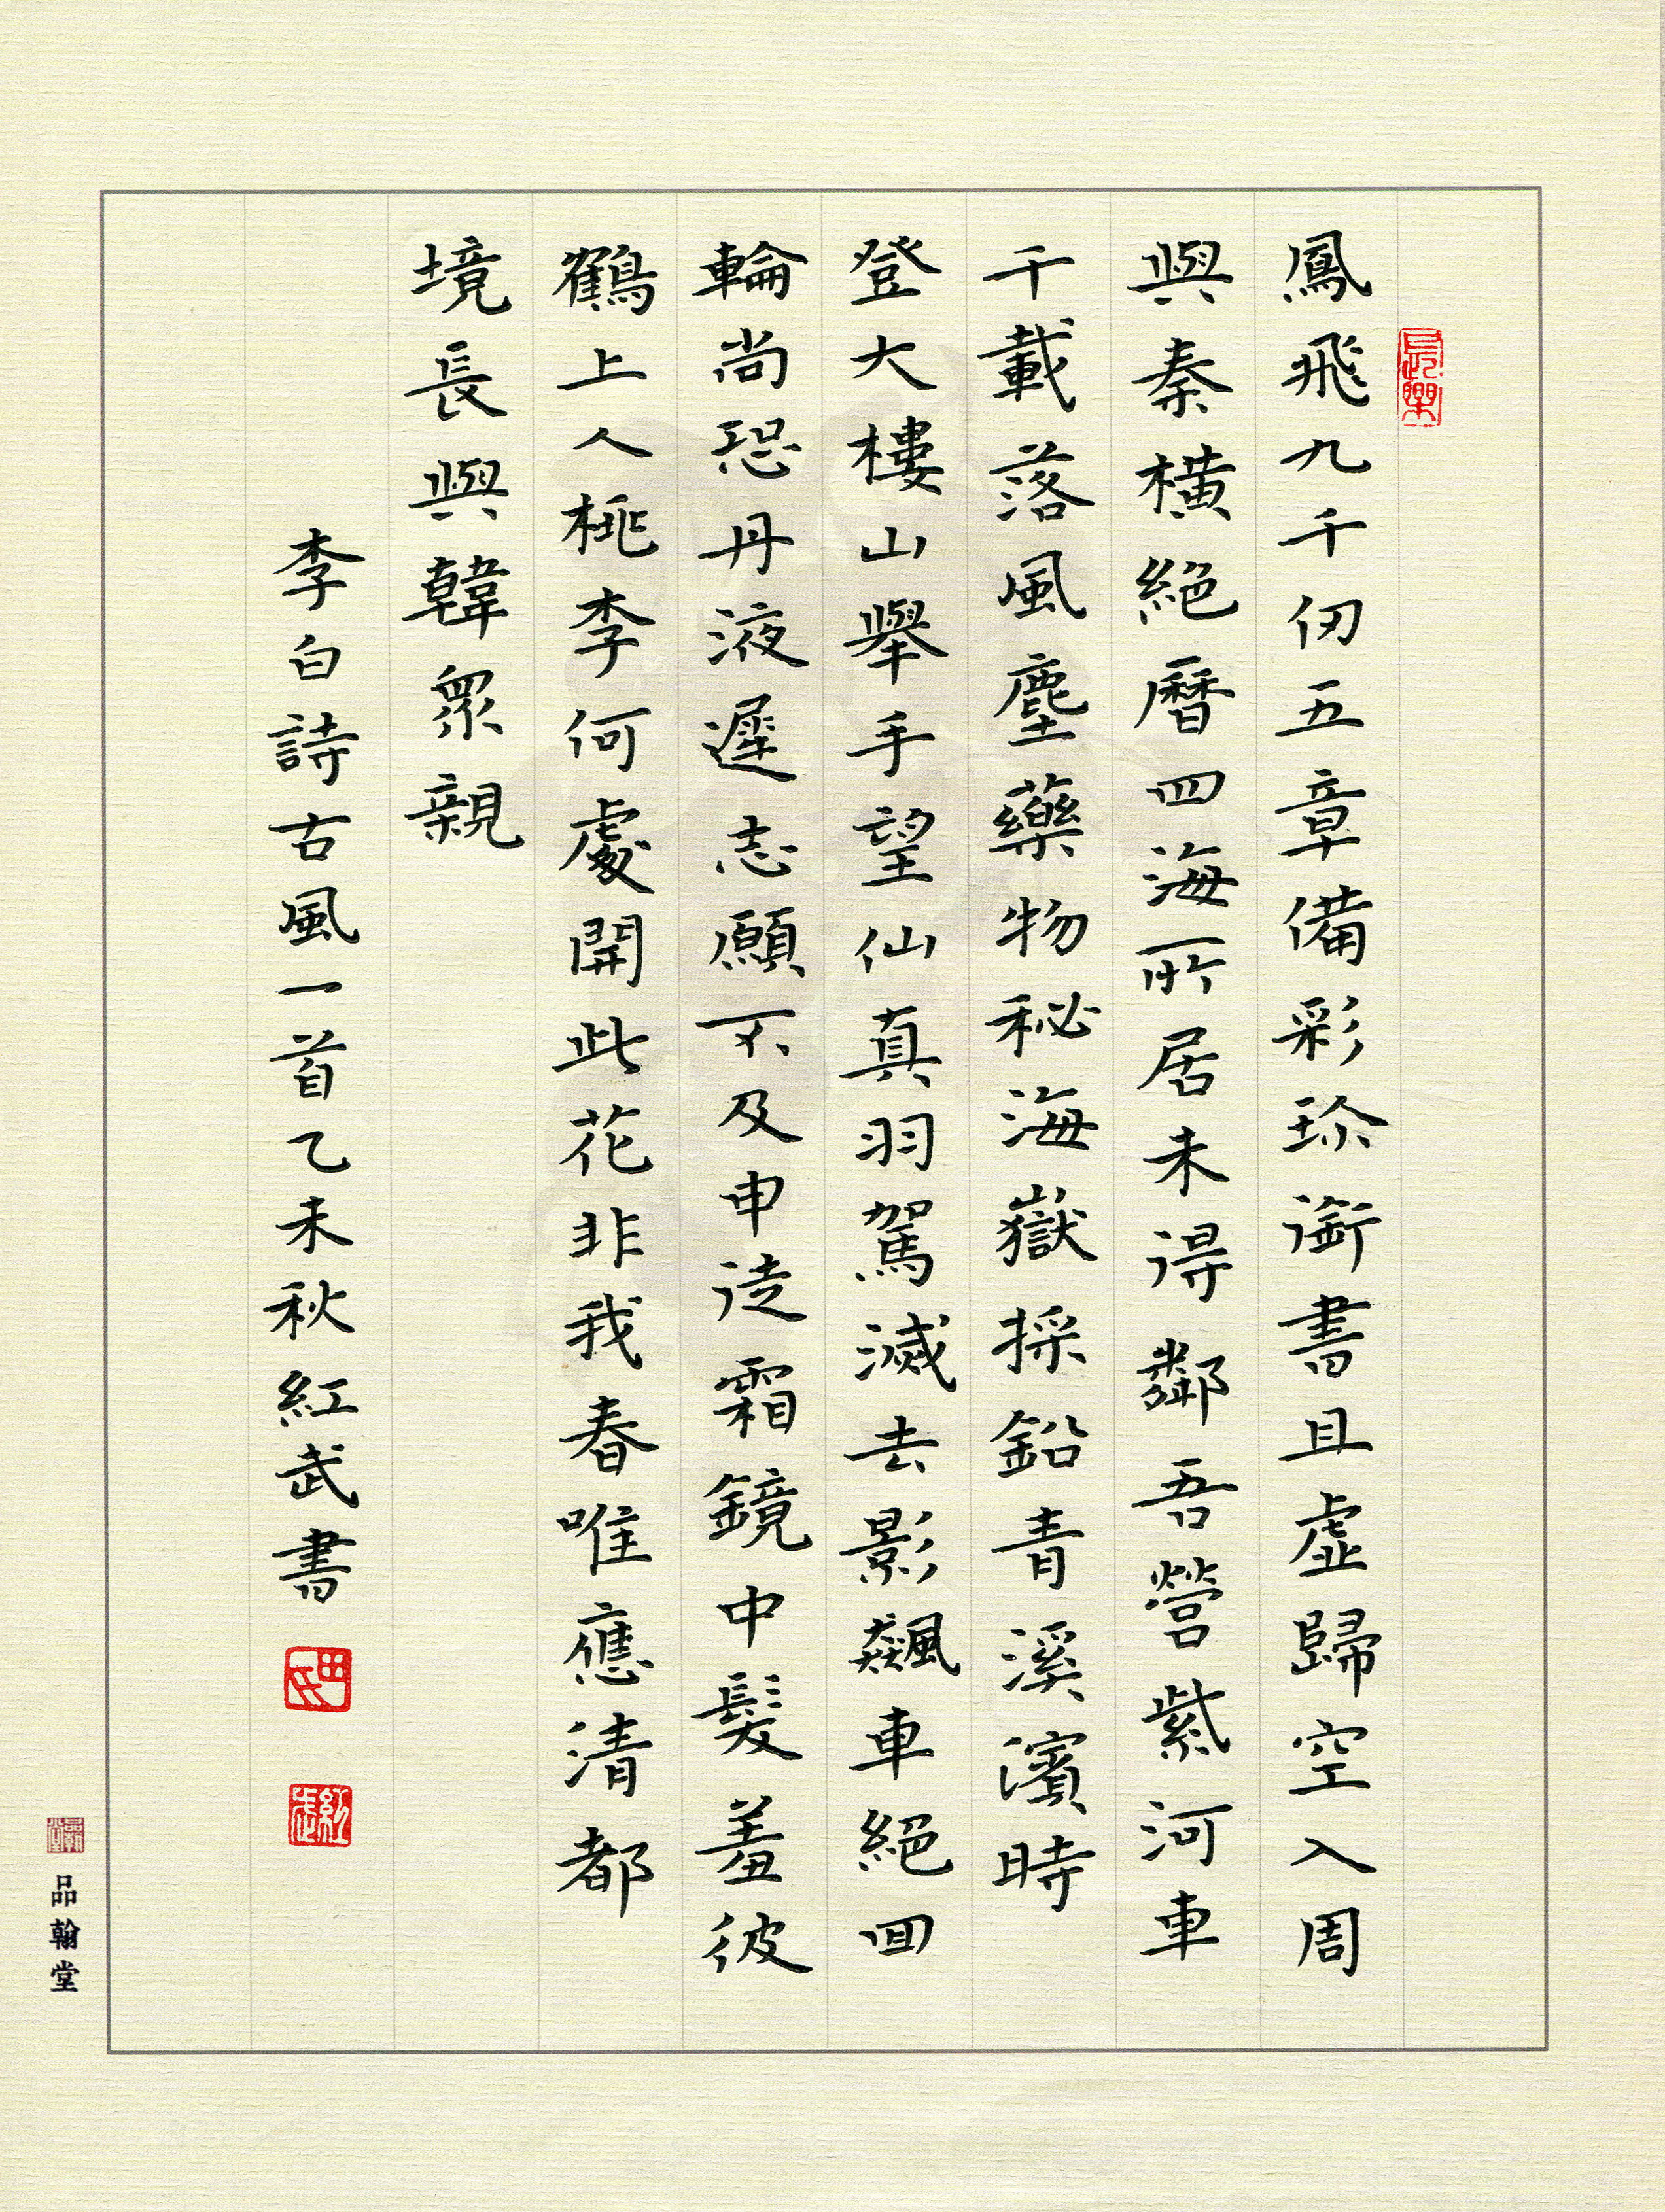 長樂
鳳飛九千仞五章備彩珍銜書且虛歸空入周
與秦橫絕曆四海所居未得鄰吾營紫河車
千載落風塵藥物秘海嶽採鉛青溪濱時
登大樓山舉手望仙真羽駕滅去影飆車絕回
輪尚恐丹液遲志願不及申徒霜鏡中髮羞彼
鶴上人桃李何處開此花非我春唯應清都
境長與韓眾親
李白詩古風一首乙未秋紅武書
田氏
紅武
品翰堂